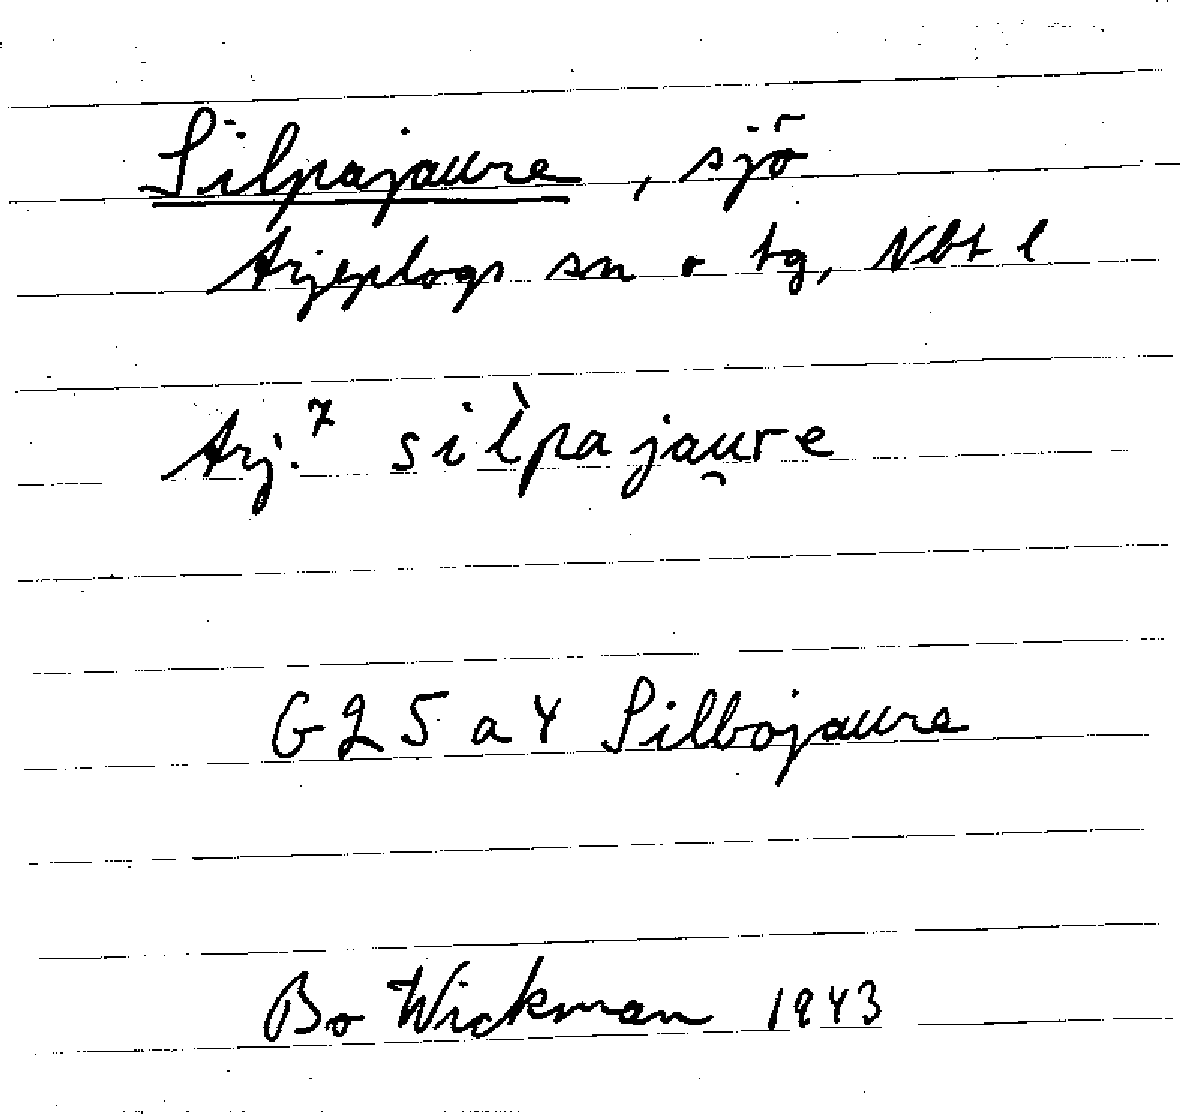 Silpajaure, sjö
Arjeplogs sn o tg, Nbt l
Arj.⁷ sil̀pajau̯re
G25a4 Silbojaure
Bo Wickman 1943